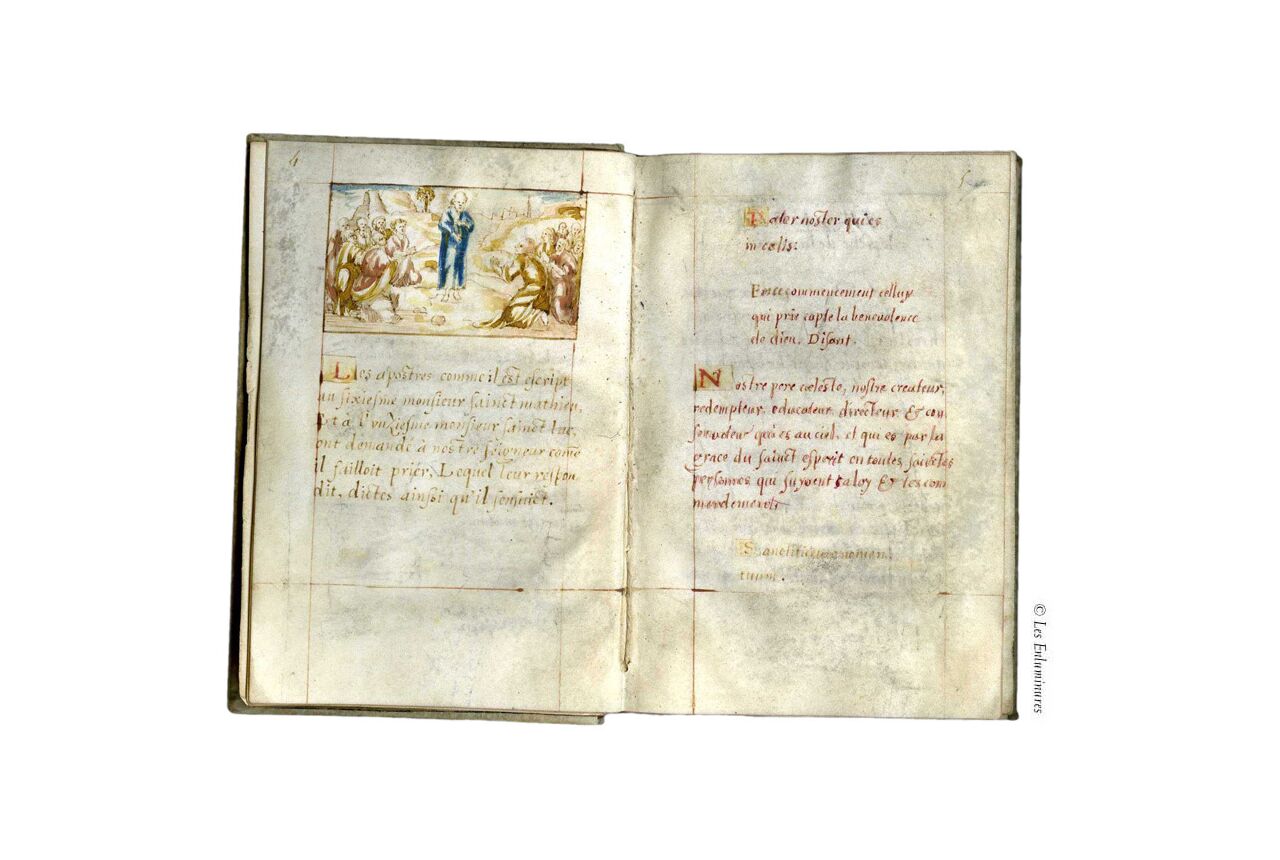 4
Les apostres comme il est escript
au sixiesme monsieur sainct mathieu,
Et a l'unziesme monsieur sainct luc,
ont demandé à nostre seigneur come
il failloit prier, Lequel leur respon
dit, dictes ainsi qu'il sensuict.
5
Pater noster qui es
in cœlis:
commencement celluy
qui prie capte la benevolence
de dieu. Disant.
Nostre pere celeste, nostre createur,
redempteur, educateur, directeur, & con
servateur qui es au ciel, et qui es par la
grace du sainct esperit en toutes sainctes
personnes qui suyvent ta loy & tes com
mandements
Sanctificetur nomen
tuum.
© Les Enluminures